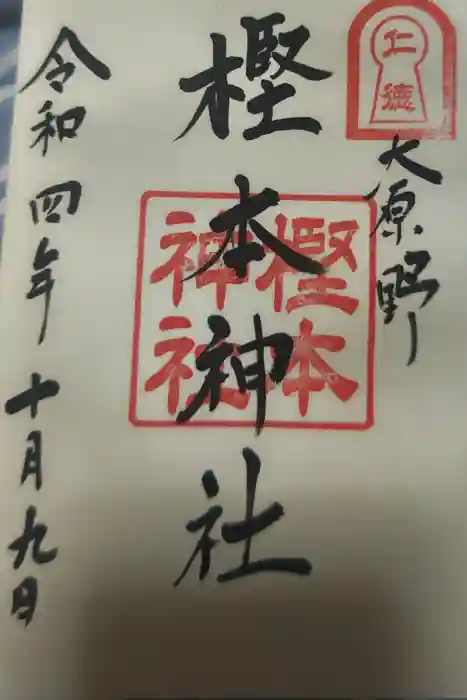 仁徳
大原野
樫本神社
樫本神社
令和四年十月九日